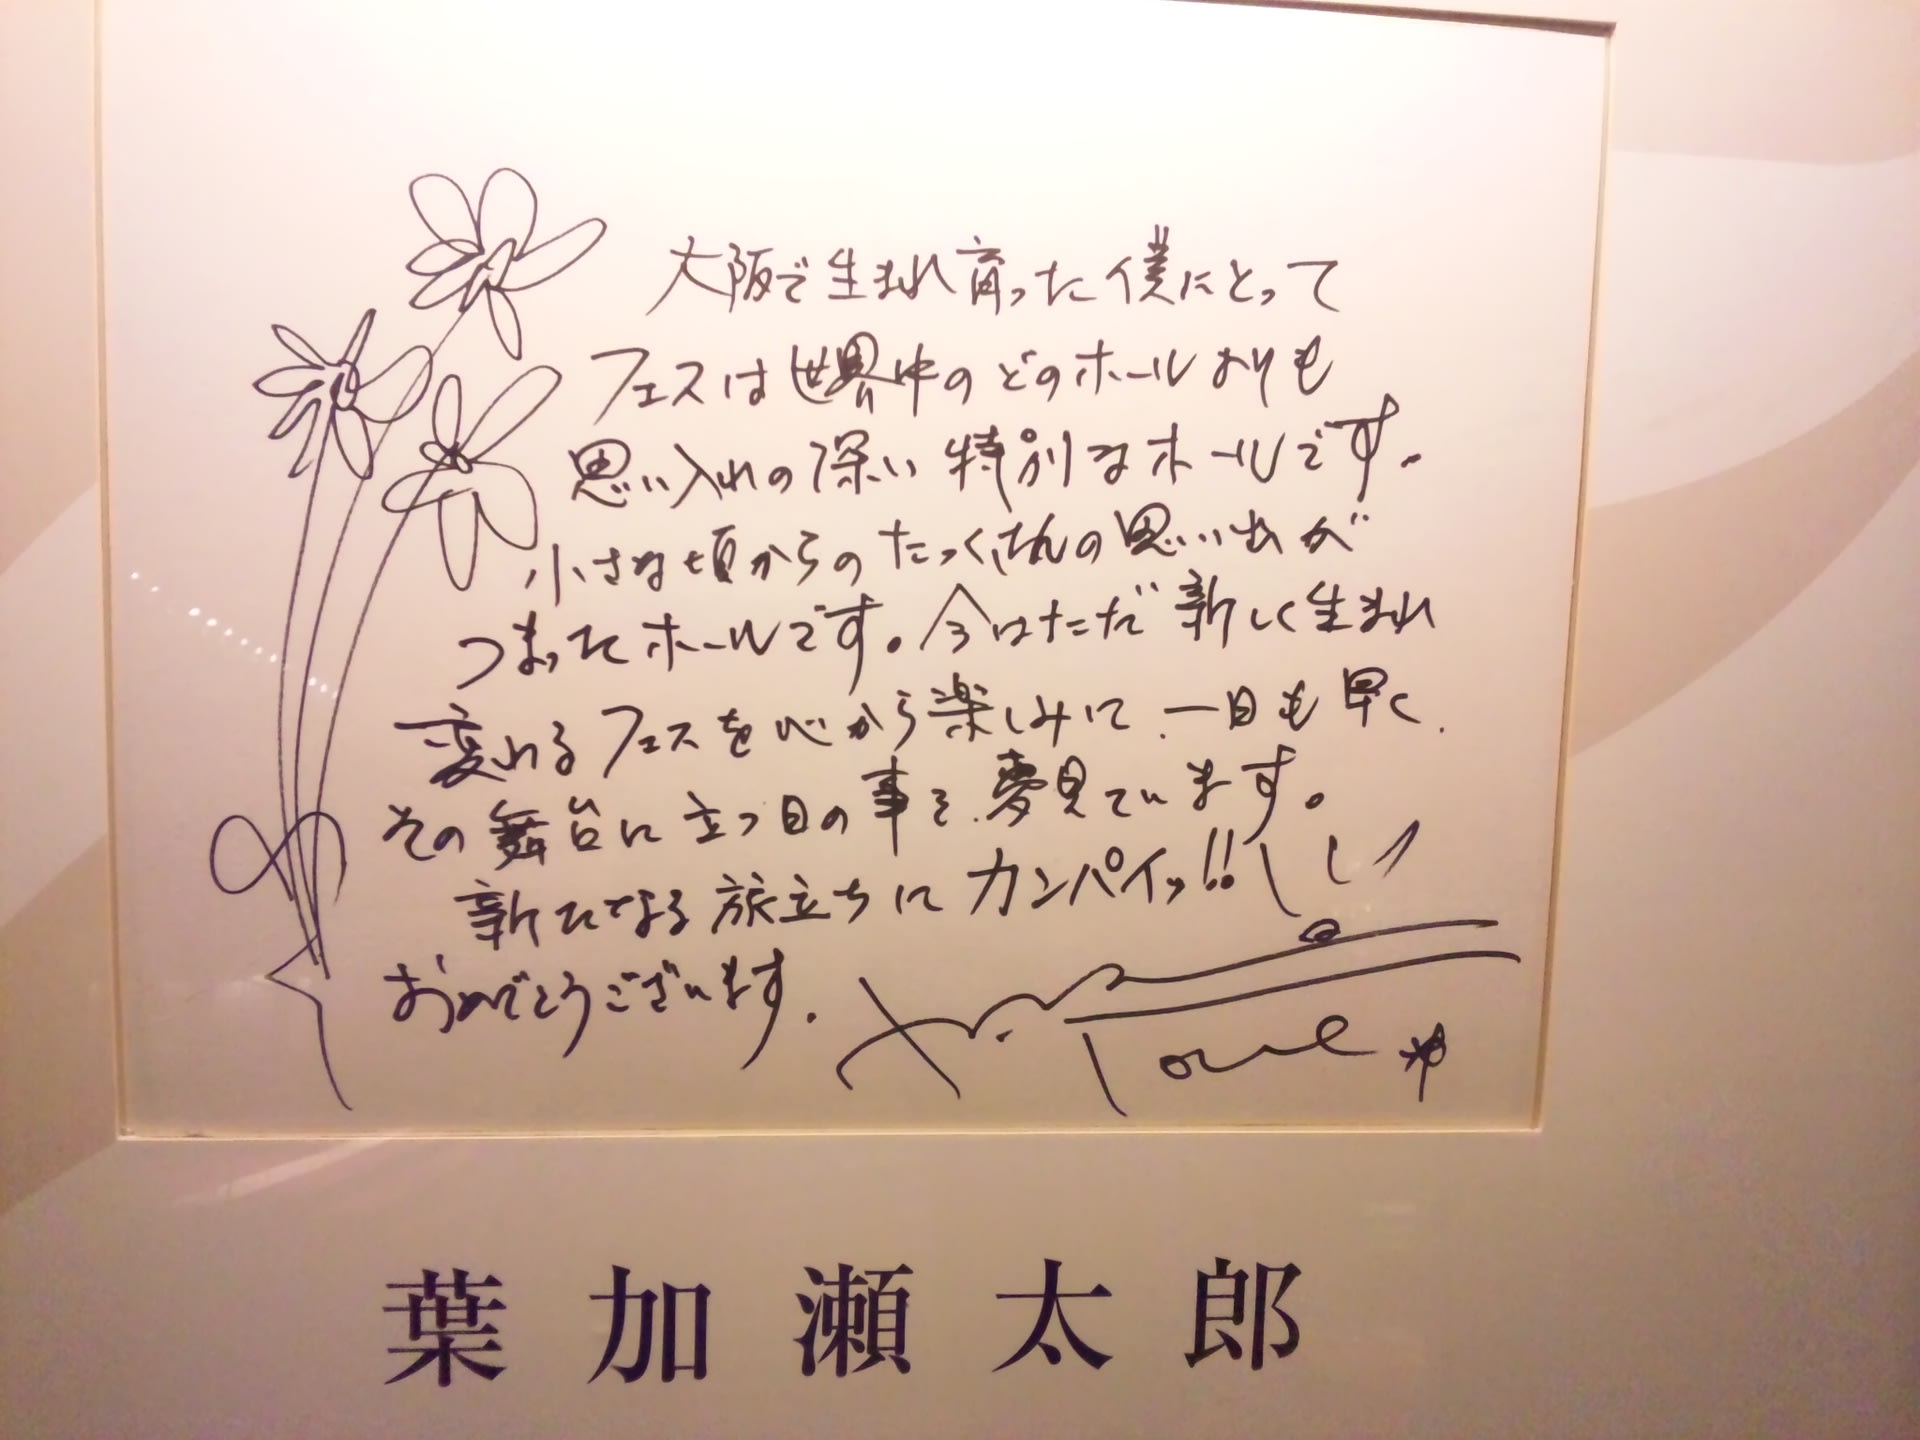 大阪で生まれ育った僕にとって
フェスは世界中のどのホールよりも
思い入れの深い特別なホールです。
小さな頃からのたっくさんの思い出が
つまったホールです。今はただ新しく生まれ
変わるフェスを心から楽しみに、一日も早く、
その舞台に立つ日の事を、夢見ています。
新たなる旅立ちにカンパイッ!!
おめでとうございます。
Taro
葉加瀬太郎